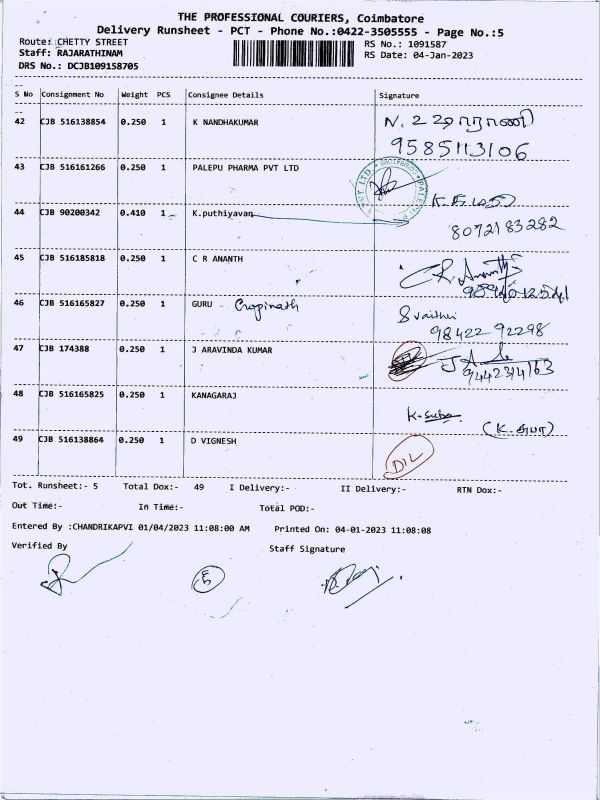 THE PROFESSIONAL COURIERS, Coimbatore
Delivery Runsheet - PCT - Phone No.:0422-3505555 - Page No.:5
Route: CHETTY STREET
RS No.: 1091587
Staff: RAJARATHINAM
RS Date: 04-Jan-2023
DRS No.: DCJB109158705
S No Consignment No Weight PCS Consignee Details Signature
42 CJB 516138854 0.250 1 K NANDHAKUMAR
9585113106
43 CJB 516161266 0.250 1 PALEPU PHARMA PVT LTD
44 CJB 90200342 0.410 1 K.puthiyavan
8072183282
45 CJB 516185818 0.250 1 C R ANANTH
46 CJB 516165827 0.250 1 GURU Gopinath
98422 92298
47 CJB 174388 0.250 1 J ARAVINDA KUMAR
48 CJB 516165825 0.250 1 KANAGARAJ
K. Suba
(K. சுபா)
49 CJB 516138864 0.250 1 D VIGNESH
DIL
Tot. Runsheet:- 5 Total Dox:- 49 I Delivery:- II Delivery:- RTN Dox:-
Out Time:- In Time:- Total POD:-
Entered By :CHANDRIKAPVI 01/04/2023 11:08:00 AM Printed On: 04-01-2023 11:08:08
Verified By Staff Signature
5